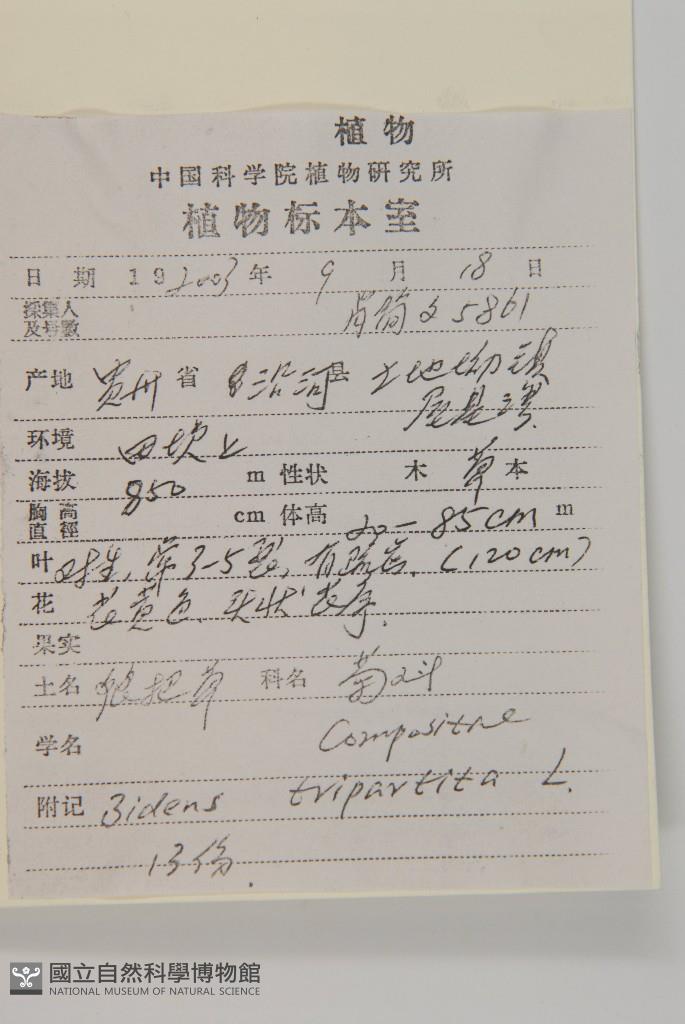 植物
中国科学院植物研究所
植物标本室
日 期 19 2003 年 9 月 18 日
採集人 肖简文 5861
及号数
产地 贵州 省 沿河 县 土地坳镇
环境 田坎上
海拔 850 m 性状 木 草 本
胸高直徑 cm 体高 20-85cm m
叶 对生, 常3-5裂, 有 (120cm)
花 花黄色, 头状花序.
果实
土名 狼把草 科名 菊科
学名 Compositae
附记 Bidens tripartita L.
13份.
國立自然科學博物館
NATIONAL MUSEUM OF NATURAL SCIENCE